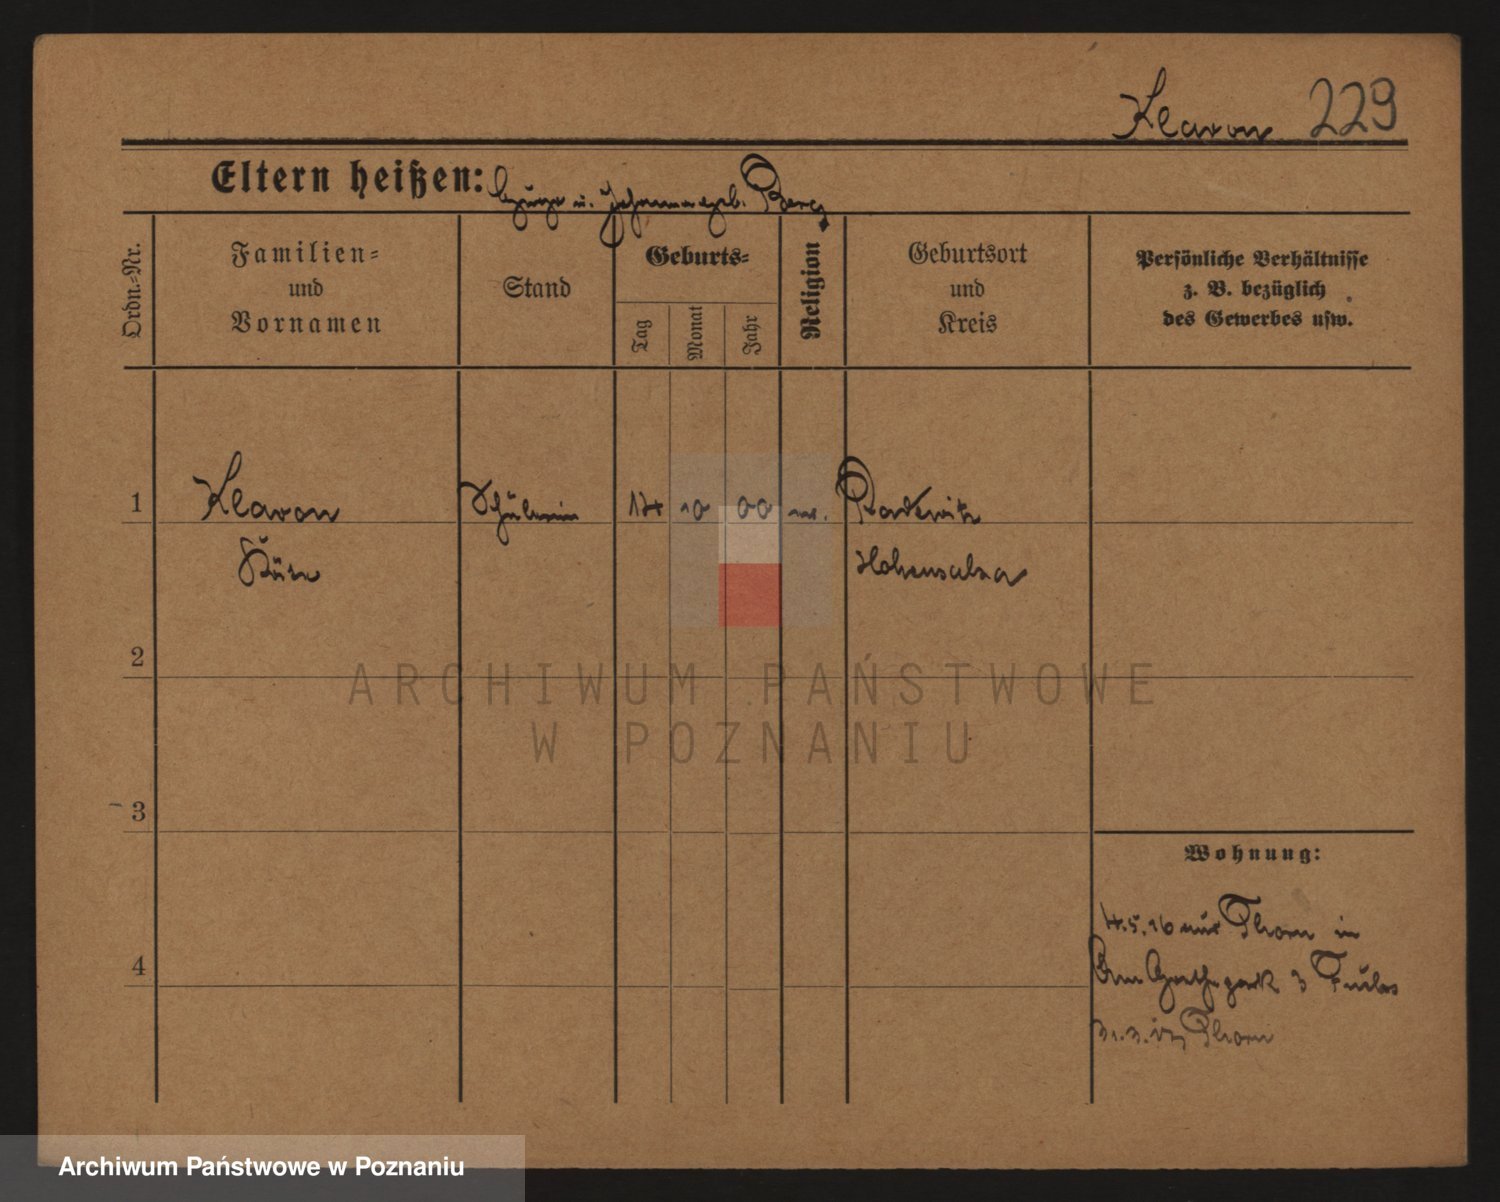 Klavon 229
Eltern heißen: u. Johanna geb. Berg
Ordn.=Nr.
Familien=
und
Vornamen
Stand
Geburts=
Tag
Monat
Jahr
Religion
Geburtsort
und
Kreis
Persönliche Verhältnisse
z. B. bezüglich
des Gewerbes usw.
1 Klavon Schülerin 14 10 00
Hohensalza
2
3
4
Wohnung:
4.5.16 aus Thorn in
Am 3
31.3.17 Thorn
ARCHIWUM PAŃSTWOWE
W POZNANIU
Archiwum Państwowe w Poznaniu